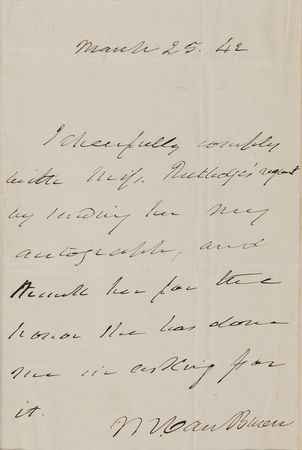 March 25. 42
I cheerfully comply
with Miss. Rutledge's request
by sending her my
autograph, and
thank her for the
honor she has done
me in asking for
it.
M Van Buren